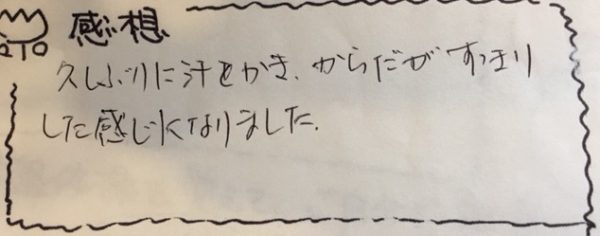 感想
久しぶりに汗をかき、からだがすっきり
した感じになりました。